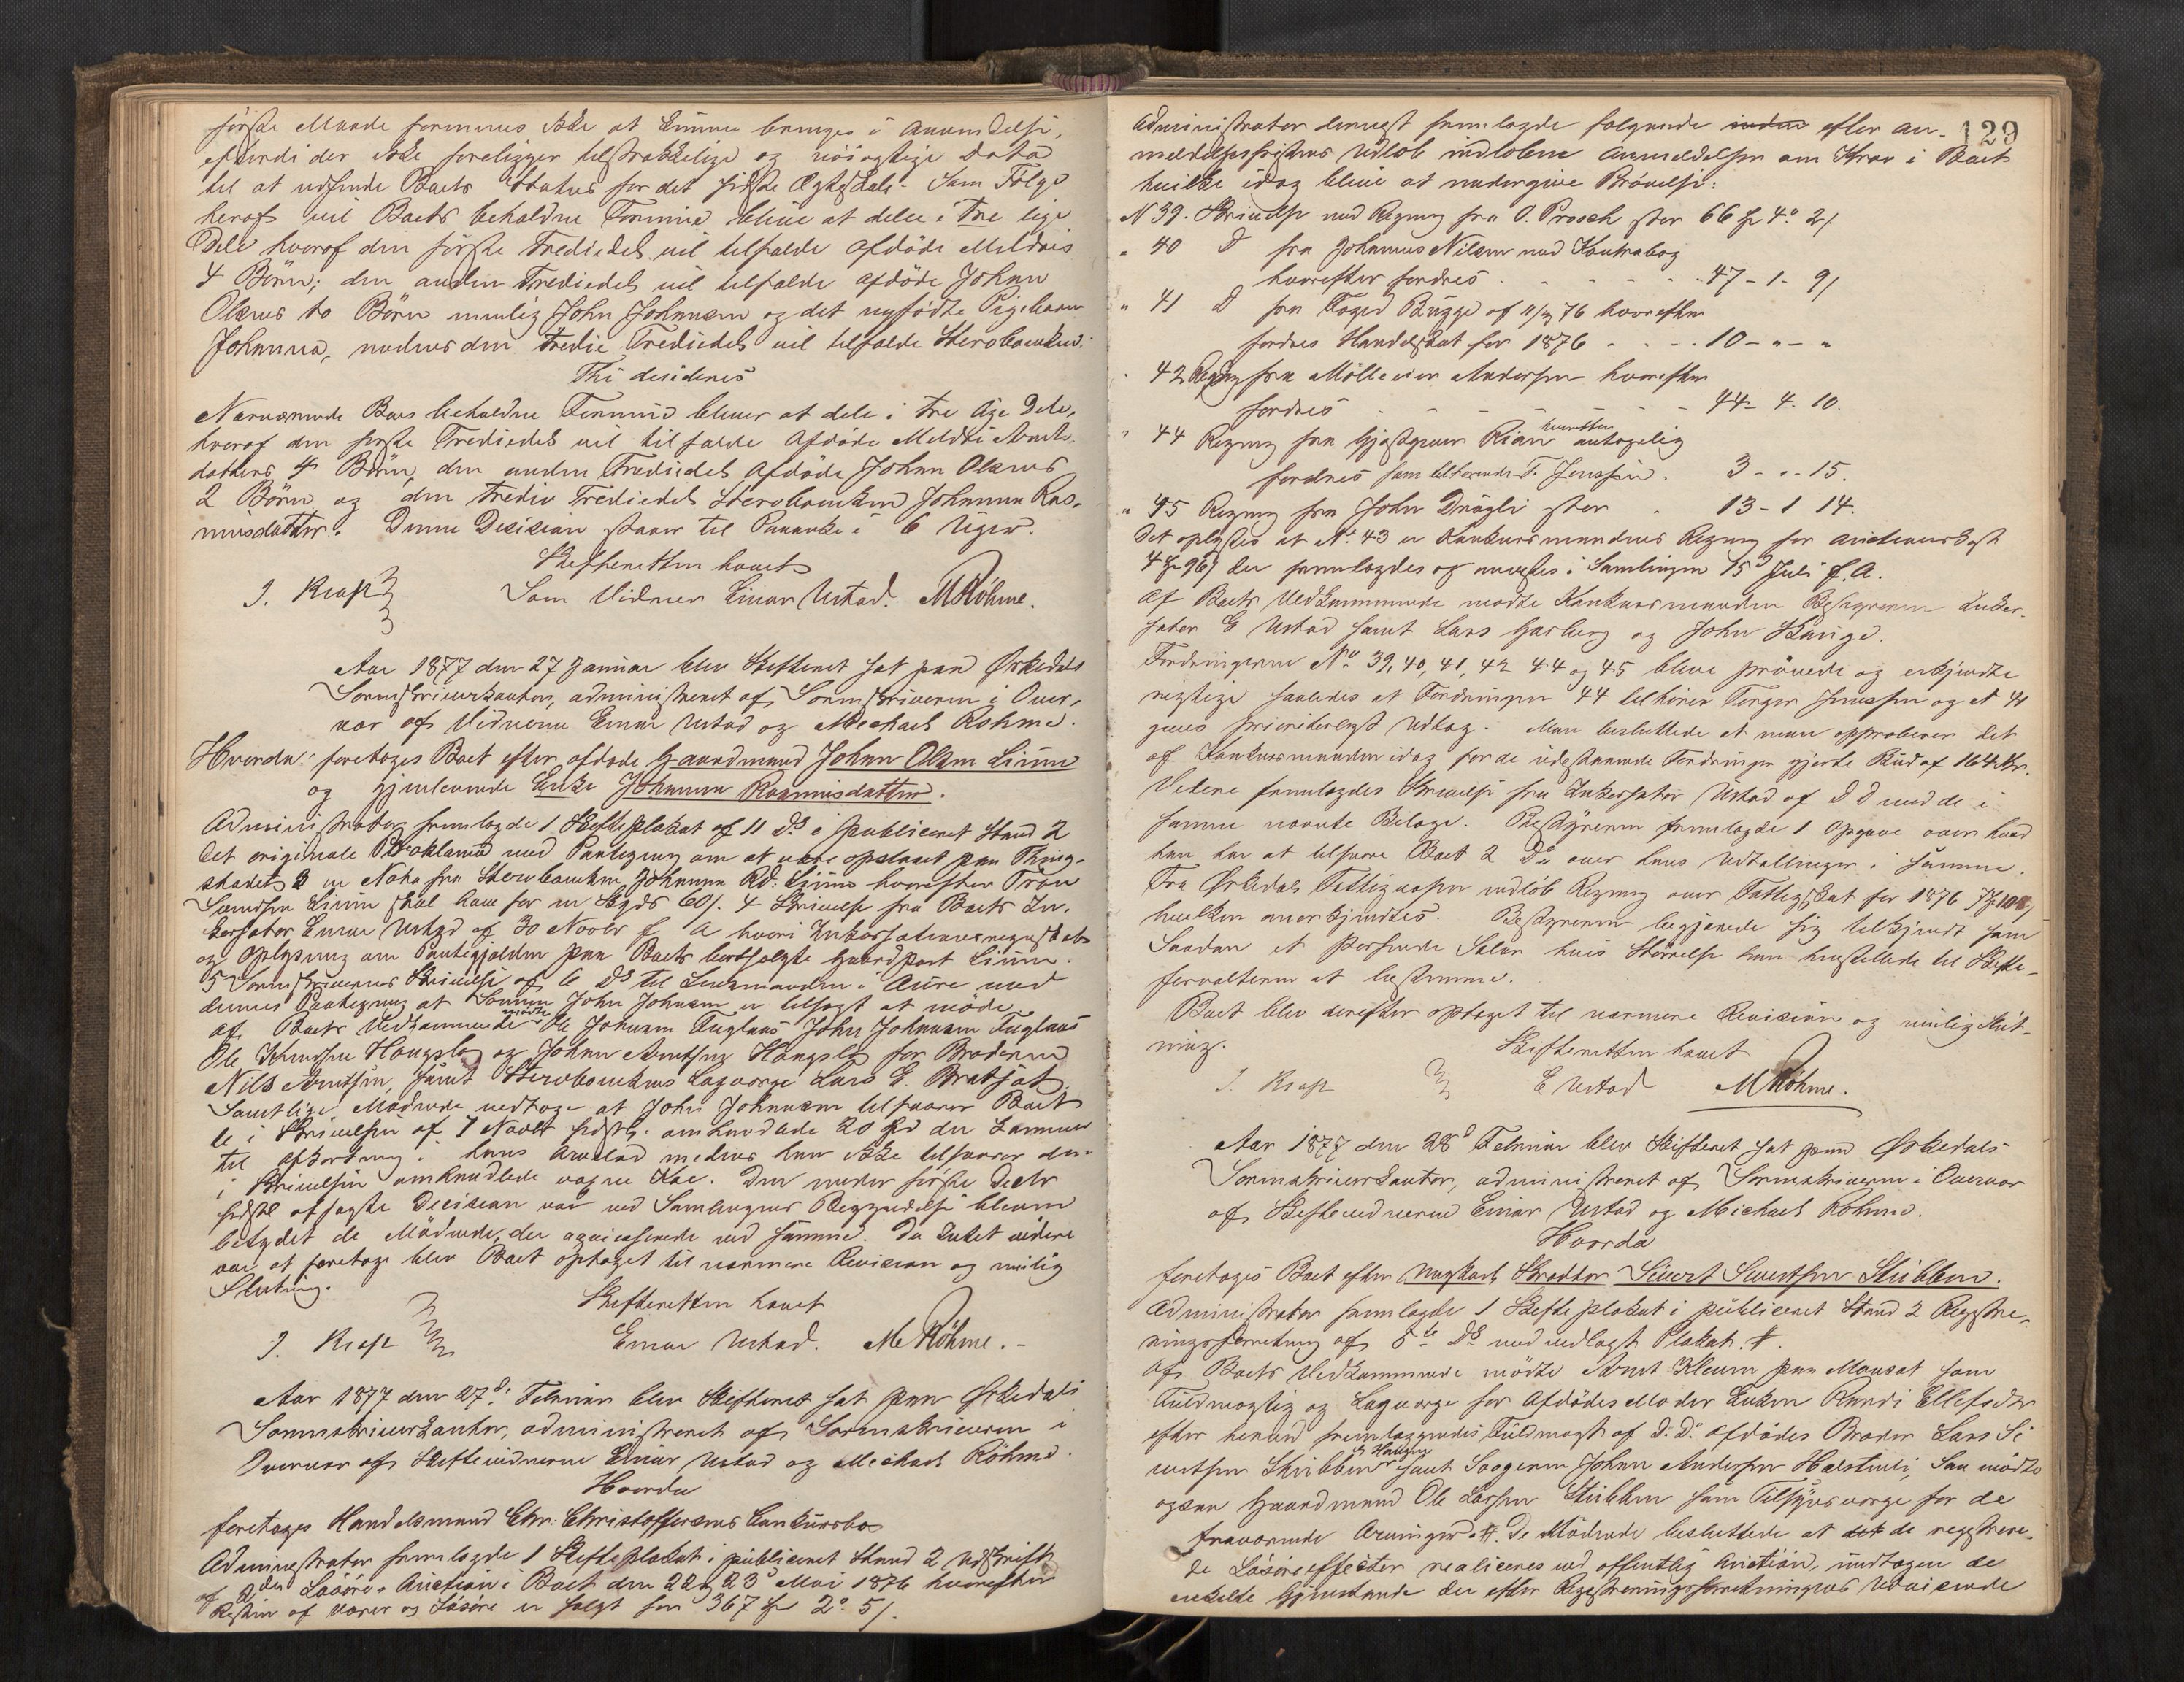 første Maade formenes ikke at kunne bringes i Anvendelse,
efterdi der ikke foreligger tilstrækkelige og nöiagtige Data
til at udfinde Boets Status for det første Ægteskab. Som Følge
heraf vil Boets beholdne Formue blive at dele i tre lige
Dele hvoraf den første Trediedel vil tilfalde afdöde Meldris
4 Börn; den anden Trediedel vil tilfalde afdöde John
Olsens to Börn nemlig John Johnsen og det nyfödte Pigebarn
Johanna, medens den tredie Trediedel vil tilfalde Stervboenken.
Thi decideres
Nærværende Boes beholdne Formue bliver at dele i tre lige Dele,
hvoraf den første Trediedel vil tilfalde Afdöde Meldri Arnts-
datters 4 Börn, den anden Trediedel Afdöde John Olsens
2 Börn og den tredie Trediedel Stervboenken Johanna Ras-
musdatter. Denne Decision staar til Paaanke i 6 Uger.
Skifteretten hævet
J. Krag Som Vidner Einar Ustad. M Röhme.
Aar 1877 den 27 Januar blev Skifteret sat paa Ørkedals
Sorenskriverkontor, administreret af Sorenskriveren i Over-
vær af Vidnerne Einar Ustad og Michael Rohme.
Hvorda: foretages Boet efter afdøde Gaardmand John Olsen Liüm
og gjenlevende Enke Johanna Rasmusdatter.
Administrator fremlagde 1 Skifteplakat af 11 Ds i publiceret Stand 2
det originale Proklama med Paategning om at være opslaaet paa Thing-
stedet 3 en Nota fra Stervboenken Johanna Rd. Liüm hvorefter Tron
Sivertsen Liüm skal have for en 60/. 4 Skrivelse fra Boets In-
kassator Einar Ustad af 30 Novbr f A hvori Inkassationsregnskab
og Oplysning om Pantegjælden paa Boets bortsolgte Gaardpart Liüm.
5 Sorenskriverens Skrivelse af 6 Ds til Lensmanden i Aüre med
dennes Paategning at Sönnen John Johnsen er tilsagt at möde
af Boets Vedkommende mödte Ole Johnsen Fuglaas John Johnsen Fuglaas
Ole Haugslo og John Arntsen Haugslo for Broderen
Nils Arntsen, samt Stervboenkens Laugværge Lars E. Bratset.
Samtlige Mödende vedtage at John Johnsen tilsvarer Boet
de i Skrivelsen af 7 Novbr sidstl. omhandlede 20 Spd der kommer
til Afkortning i hans Arvelod medens han ikke tilsvarer den
i Skrivelsen omhandlede Koe. Den under første Decbr
sidstl afsagte Decision var ved Samlingens Begyndelse bleven
betydet de Mödende, der acquiescerede ved samme. Da Intet videre
var at foretage blev Boet optaget til nærmere Revision og mulig
Slutning.
Skifteretten hævet
J. Krag Einar Ustad. M Röhme.
Aar 1877 den 27d. Februar blev Skifteret sat paa Ørkedals
Sorenskriverkontor, administreret af Sorenskriveren i
Overvær af Skiftevidnerne Einar Ustad og Michael Röhme.
Hvorda
foretages Handelsmand Chr. Christoffersens Conkursbo
Administrator fremlagde 1 Skifteplakat i publiceret Stand 2 Udskrift
af 2den Lösöre-Auction i Boet den 22 & 23d Mai 1876 hvorefter
Resten af Varer og Lösöre er solgt for 367 Sp 2º 5/.
129
Administrator dernæst fremlagde følgende inden efter An-
meldelsesfristens Udlöb indlöbne Anmeldelser om Krav i Boet
hvilke idag blive at undergive Prövelse:
N 39. Skrivelse med Regning fra O. Prosch stor 66 Sp 4º 2/
" 40 D fra Johannes Nilsen med Kontrabog
hvorefter fordres 47 - 1 - 9/
" 41 D fra Foged Bugge af 11/ 76 hvorefter
fordres Handelsskat for 1876 10 - " - "
" 42 Regning fra Mölleeier Andersen hvorefter
fordres 44 - 4. 10.
" 44 Regning fra Gjæstgiver Rian hvorefter antagelig
fordres som tilhörende T. Jenssen. 3 - " - 15.
" 45 Regning fra John Drögli stor 13 - 1 14.
Det oplystes at No. 43 er Konkursmandens Regning for Auctionskost
4 Sp 96/ der fremlagdes og anerkjendtes i Samlingen 15d Juli f. A.
Af Boets Vedkommende mødte Konkursmanden Bestyreren Inkas-
sator E Ustad samt Lars Garberg og John Kringe.
Fordringerne No. 39, 40, 41, 42 44 og 45 bleve prövede og erkjendte
rigtige saaledes at Fordringen 44 tilhörer Torger Jenssen og N 41
gives prioriteret Udlæg. Man besluttede at man approberer det
af Konkursmanden idag for de udestaaende Fordringer gjorte Bud af 164 Kr.
Videre fremlagdes Skrivelse fra Inkassator Ustad af D D med de i
samme nævnte Belage. Bestyreren fremlagde 1 Opgave over hvad
han har at tilsvare Boet 2 Do over hans Udtællinger i samme.
Fra Ørkedals Fattigvæsen indlöb Regning over Fattigskat for 1876 7 Sp 108/
hvilken anerkjendtes. Bestyreren begjærede sig tilkjendt som
Saadan et passende Salær hvis Störrelse han henstillede til Skifte-
forvalteren at bestemme.
Boet blev derefter optaget til nærmere Revision og mulig Slut-
ning.
Skifteretten hævet
J. Krag E Ustad M Röhme.
Aar 1877 den 28d Februar blev Skifteret sat paa Ørkedals
Sorenskriverkontor, administreret af Sorenskriveren i Overvær
af Skiftevidnerne Einar Ustad og Michael Röhme.
Hvorda
foretages Boet efter Ungkarl Skrædder Sivert Sivertsen Stübben.
Administrator fremlagde 1 Skifteplakat i publiceret Stand 2 Registre-
ringsforretning af 5te Ds med vedlagt Plakat. #.
Af Boets Vedkommende mödte Arnt Kleven paa Mansat som
Fuldmægtig og Laugværge for Afdödes Moder Enken Randi Ellefsdtr
efter hende fremlæggendes Fuldmagt af D. D. Afdödes Broder Lars Si
vertsen Stubben samt Svogeren John Andersen Halstuli, San mödte
ogsaa Gaardmand Ole Larsen Stubben som Tilsynsværge for de
fraværende Arvinger. #. De Mödende besluttede at det de registrere-
de Lösöreeffecter realiceres ved offentlig Auction, undtagen de
enkelte Gjenstande der efter Registreringsforretningens Udvisende